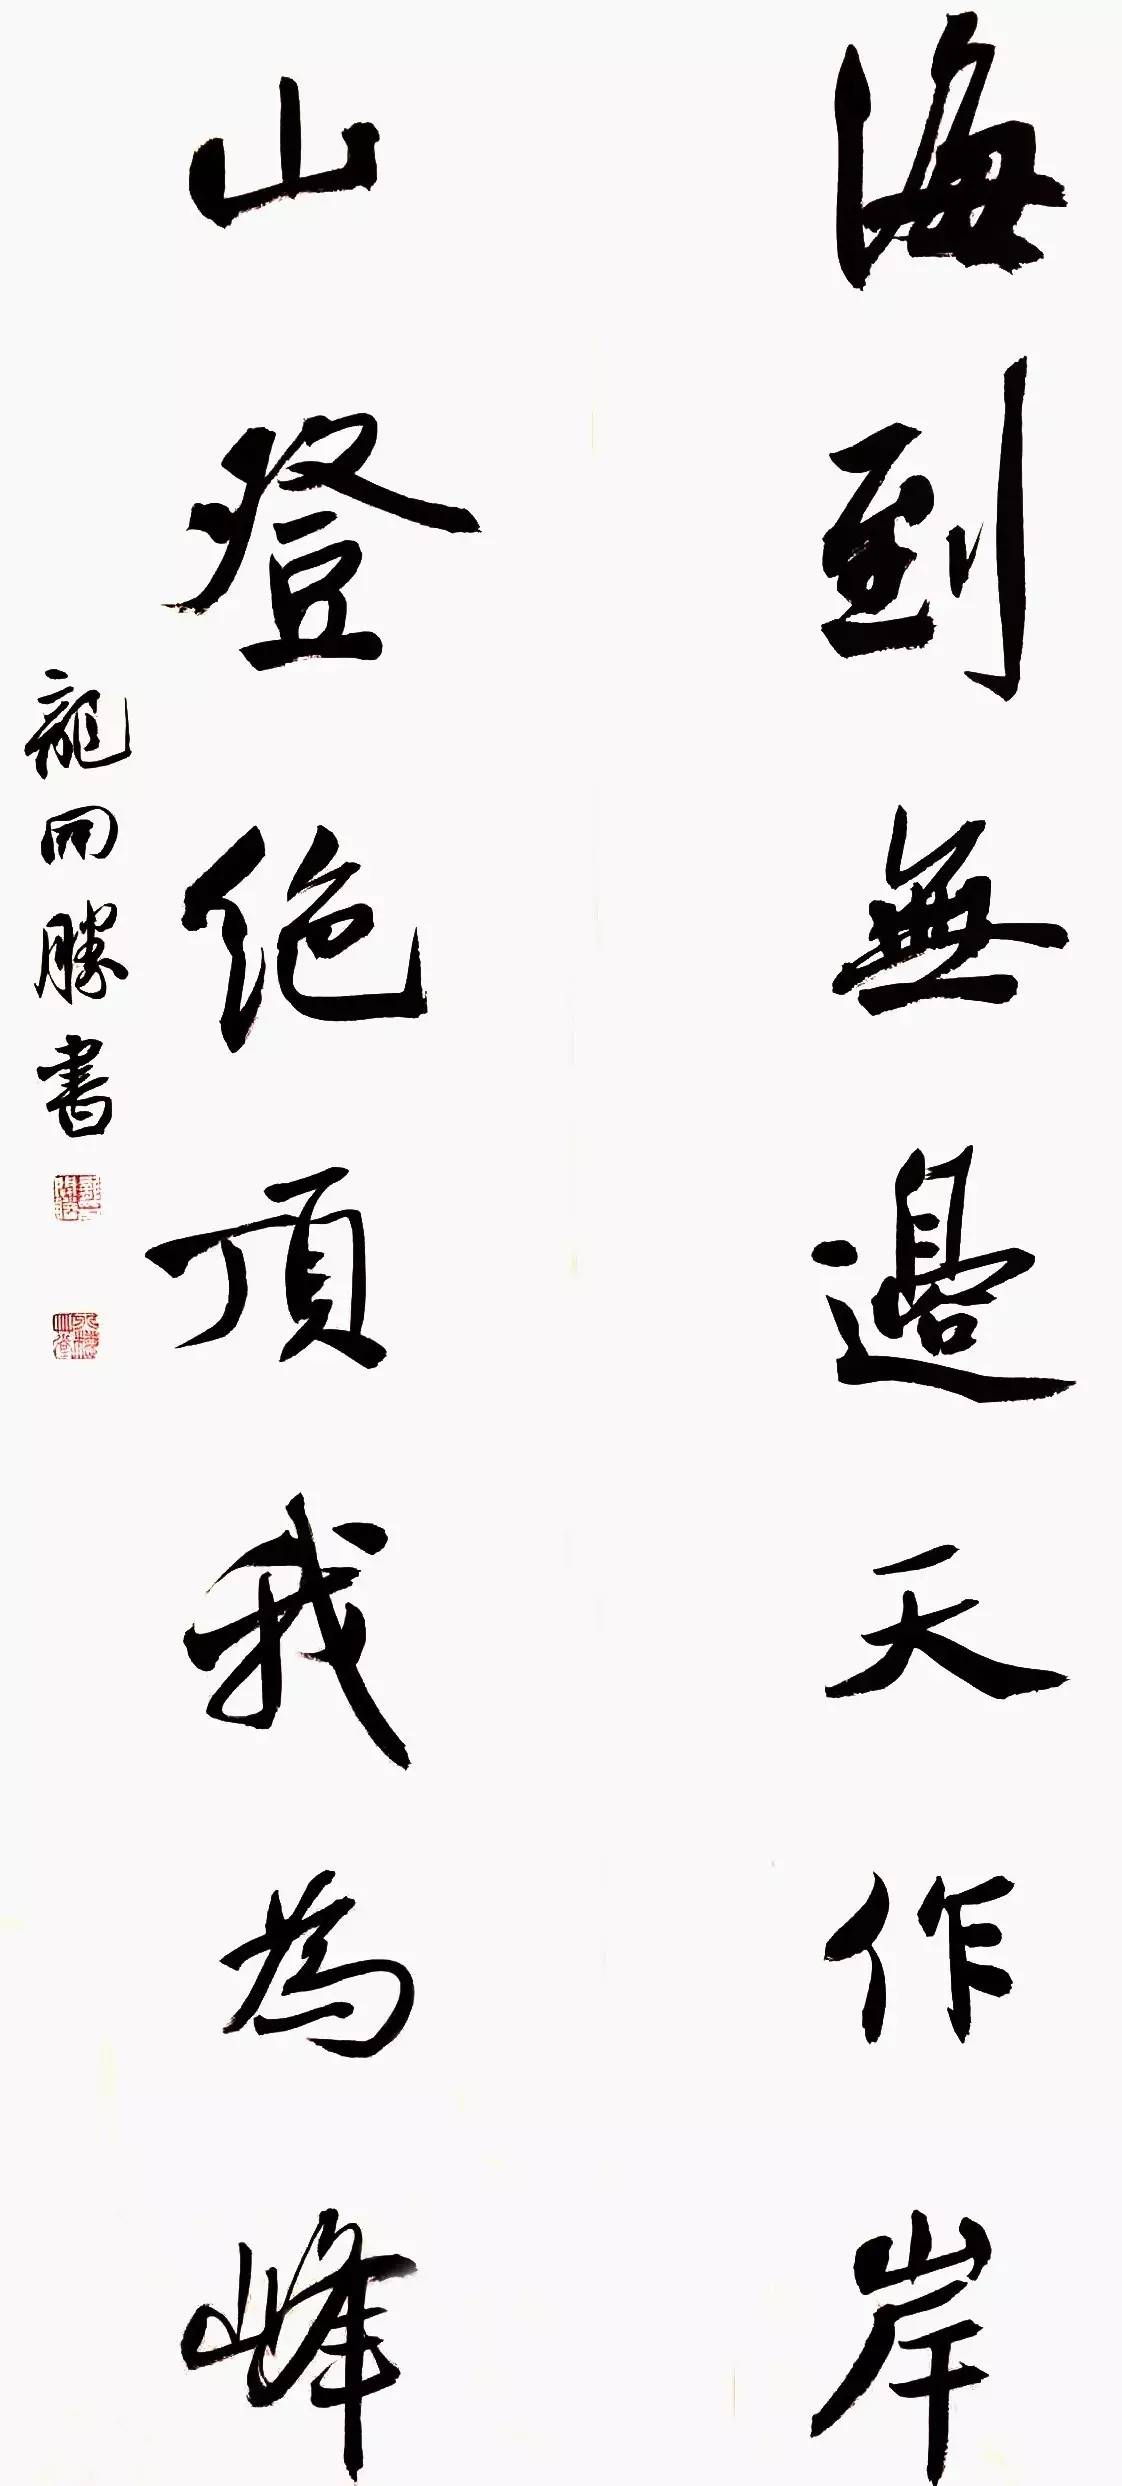 海到無邊天作岸
山登绝顶我為峰
龍開勝書